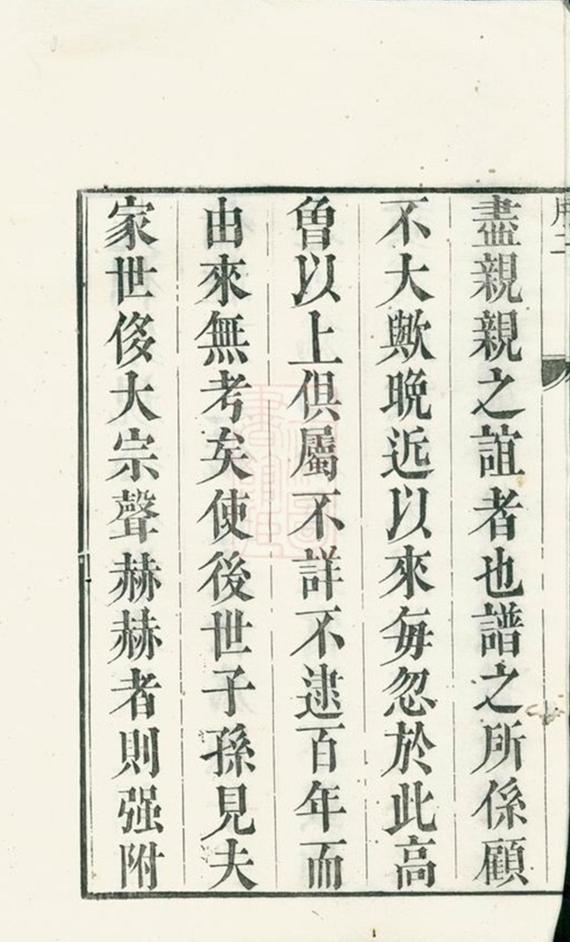 盡親親之誼者也譜之所係顧
不大歟晩近以來每忽於此高
曾以上俱屬不詳不逮百年而
由來無考矣使後世子孫見夫
家世侈大宗聲赫赫者則强附